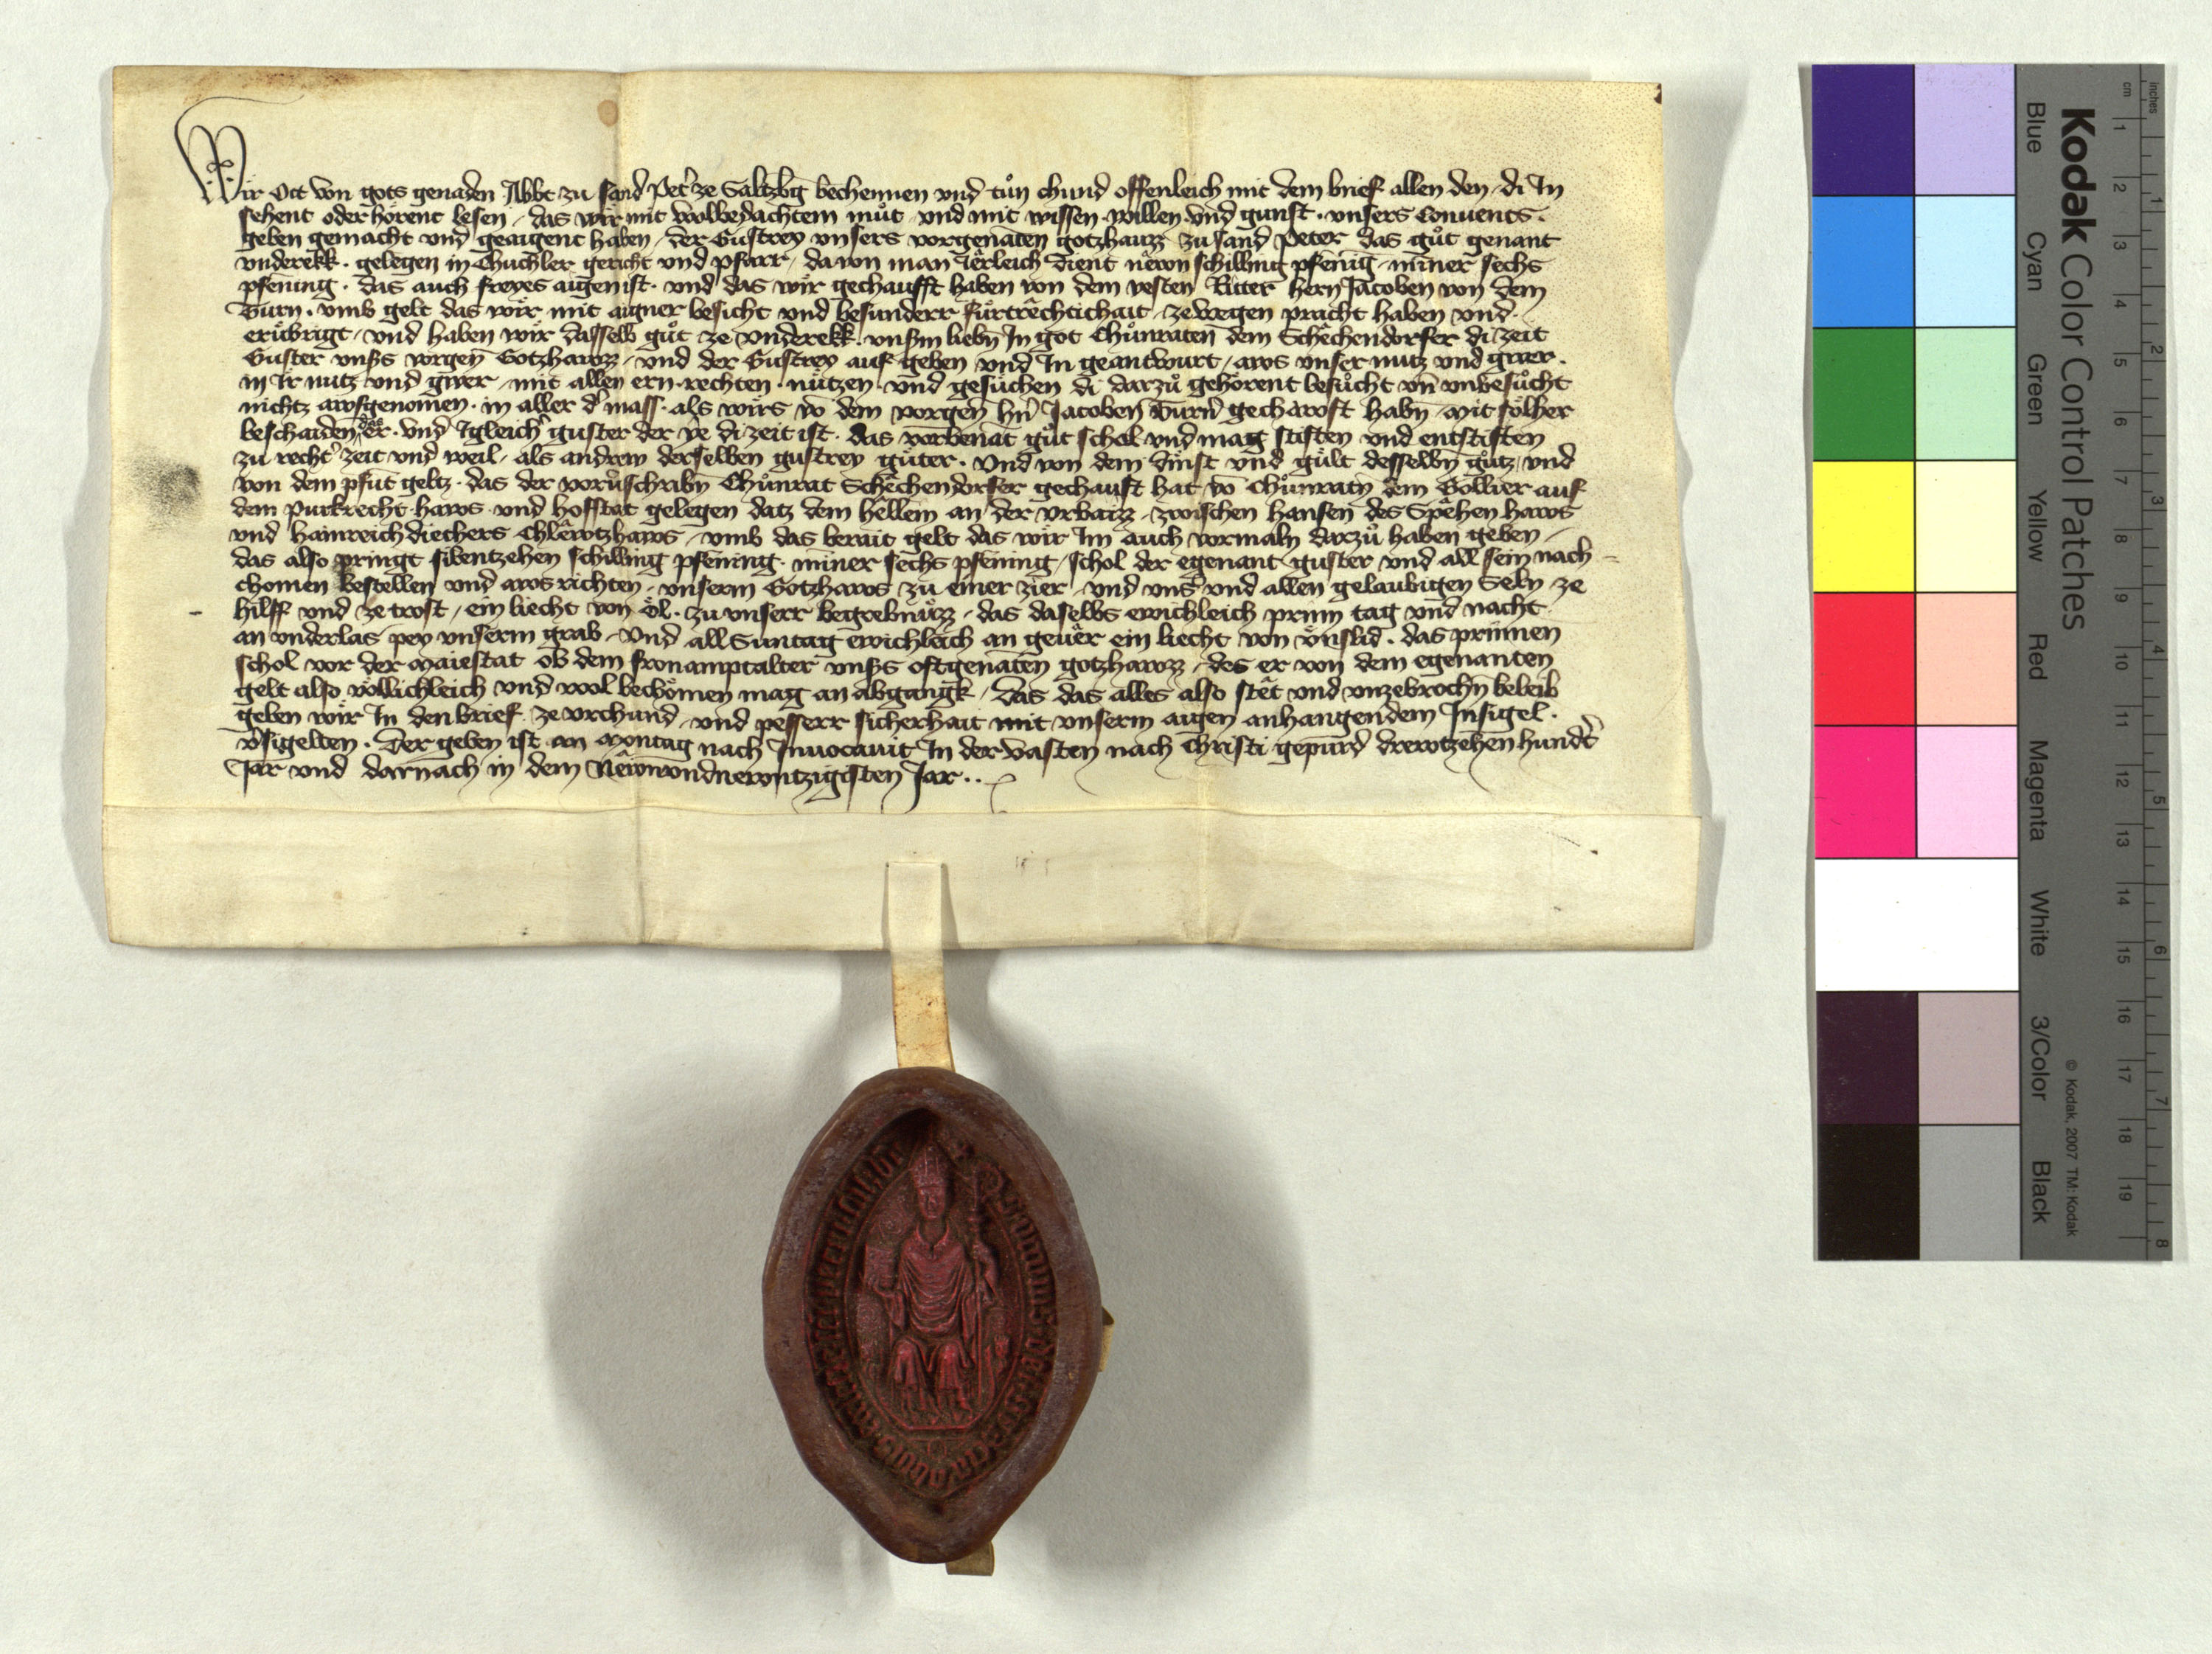 Wir Ott von gots genaden Abbt zu sand Pet' ze Saltzbg bechennen vnd tůn chund offenleich mit dem brief allen den, di In
sehent oder hörent lesen, das wir mit wolbedachtem můt vnd mit wissen willen vnd gunst vnsers Conuents.
geben gemacht vnd geaigent haben, der Gustrey vnsers vorgenāten gotzhauzz zu sand Peter das gůt genant
vnderekk. gelegen in Chuchler gericht vnd pfarr, dauon man Jërleich dient newn schilling pfenīg, mīner sechs
pfening. das auch freyes aigen ist. vnd das wir gechaufft haben von dem vesten Ritter hern Jacoben von dem
Turn. vmb gelt das wir mit aigner besicht vnd besunderr fürtrêchtichait, ze wegen pracht haben vnd
erübrigt, vnd haben wir dasselb gůt ze vnderekk. vnsm liebn In got Chůnraten dem Schêchendorfer di zeit
Guster vnss vorgen Gotzhawzz, vnd der Gustrey auf geben vnd In geantwurt, aws vnser nutz vnd gwer.
in Ir nutz vnd gwer, mit allen ern rechten nützen vnd gesůchen di darzů gehörent besůcht vn vnbesůcht
nichtz awsgenomen. in aller d' mass. als wirs vō dem vorgen hn Jacoben Turn gechawft habn, mit sölher
beschaiden, er. vnd Igleich' guster der ye di zeit ist. das vorbenāt gůt schol vnd mag stiften vnd entstiften
zu recht' zeit vnd weil, als andrew derselben gustrey güter. Vnd von dem dinst vnd gült desselbn gůtz, vnd
von dem pfūt geltz. das der vorūschribn Chůnrat Schêchendorfer gechauft hat, vō Chůnratn dem Gollier auf
dem purkrecht haws vnd hofstat gelegen datz dem hellem an der vrbaizz, zwischen hansen des Spêhen haws
vnd hainreich diechers Chlâwtzhaws, vmb das berait gelt das wir Im auch vormaln darzů haben geben,
das also pringt sibentzehen schilling pfening. mīner sechs pfening, schol der egenant guster vnd all sein nach=
chomen bestellen vnd awsrichten, vnserm Gotzhaws zu einer zier, vnd vns vnd allen gelaubigen Seln ze
hilff vnd ze trost, ein liecht von öl. zu vnserr begrebnüzz, das daselbs ewichleich prinn tag vnd nacht
an vnderlas pey vnserm grab. Vnd all Suntag ewichleich an geuêr ein liecht von vnslid. das prinnen
schol vor der Maiestat ob dem fronamptalter vnss oftgenaten gotzhawzz, des er von dem egenanten
gelt also völlichleich vnd wol bechömen mag an abgangk, Das das alles also stêt vnd vnzebrochn beleib
geben wir In den brief ze vrchund, vnd pesserr sicherhait mit vnserm aigen anhangendem Insigel.
v'sigelten. Der geben ist am Montag nach Inuocauit In der Vasten nach Christi gepurd drewtzehen hundt'
Jar vnd darnach in dem Newnvndnewntzigisten Jar..
Kodak Color Control Patches
Blue Cyan Green Yellow Red Magenta White 3/Color Black
© Kodak, 2007 TM: Kodak
inches 1 2 3 4 5 6 7 8
cm 1 2 3 4 5 6 7 8 9 10 11 12 13 14 15 16 17 18 19